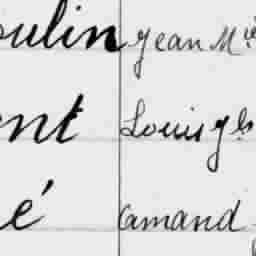 oulin Jean Mie
ent Louis gls
é Amand